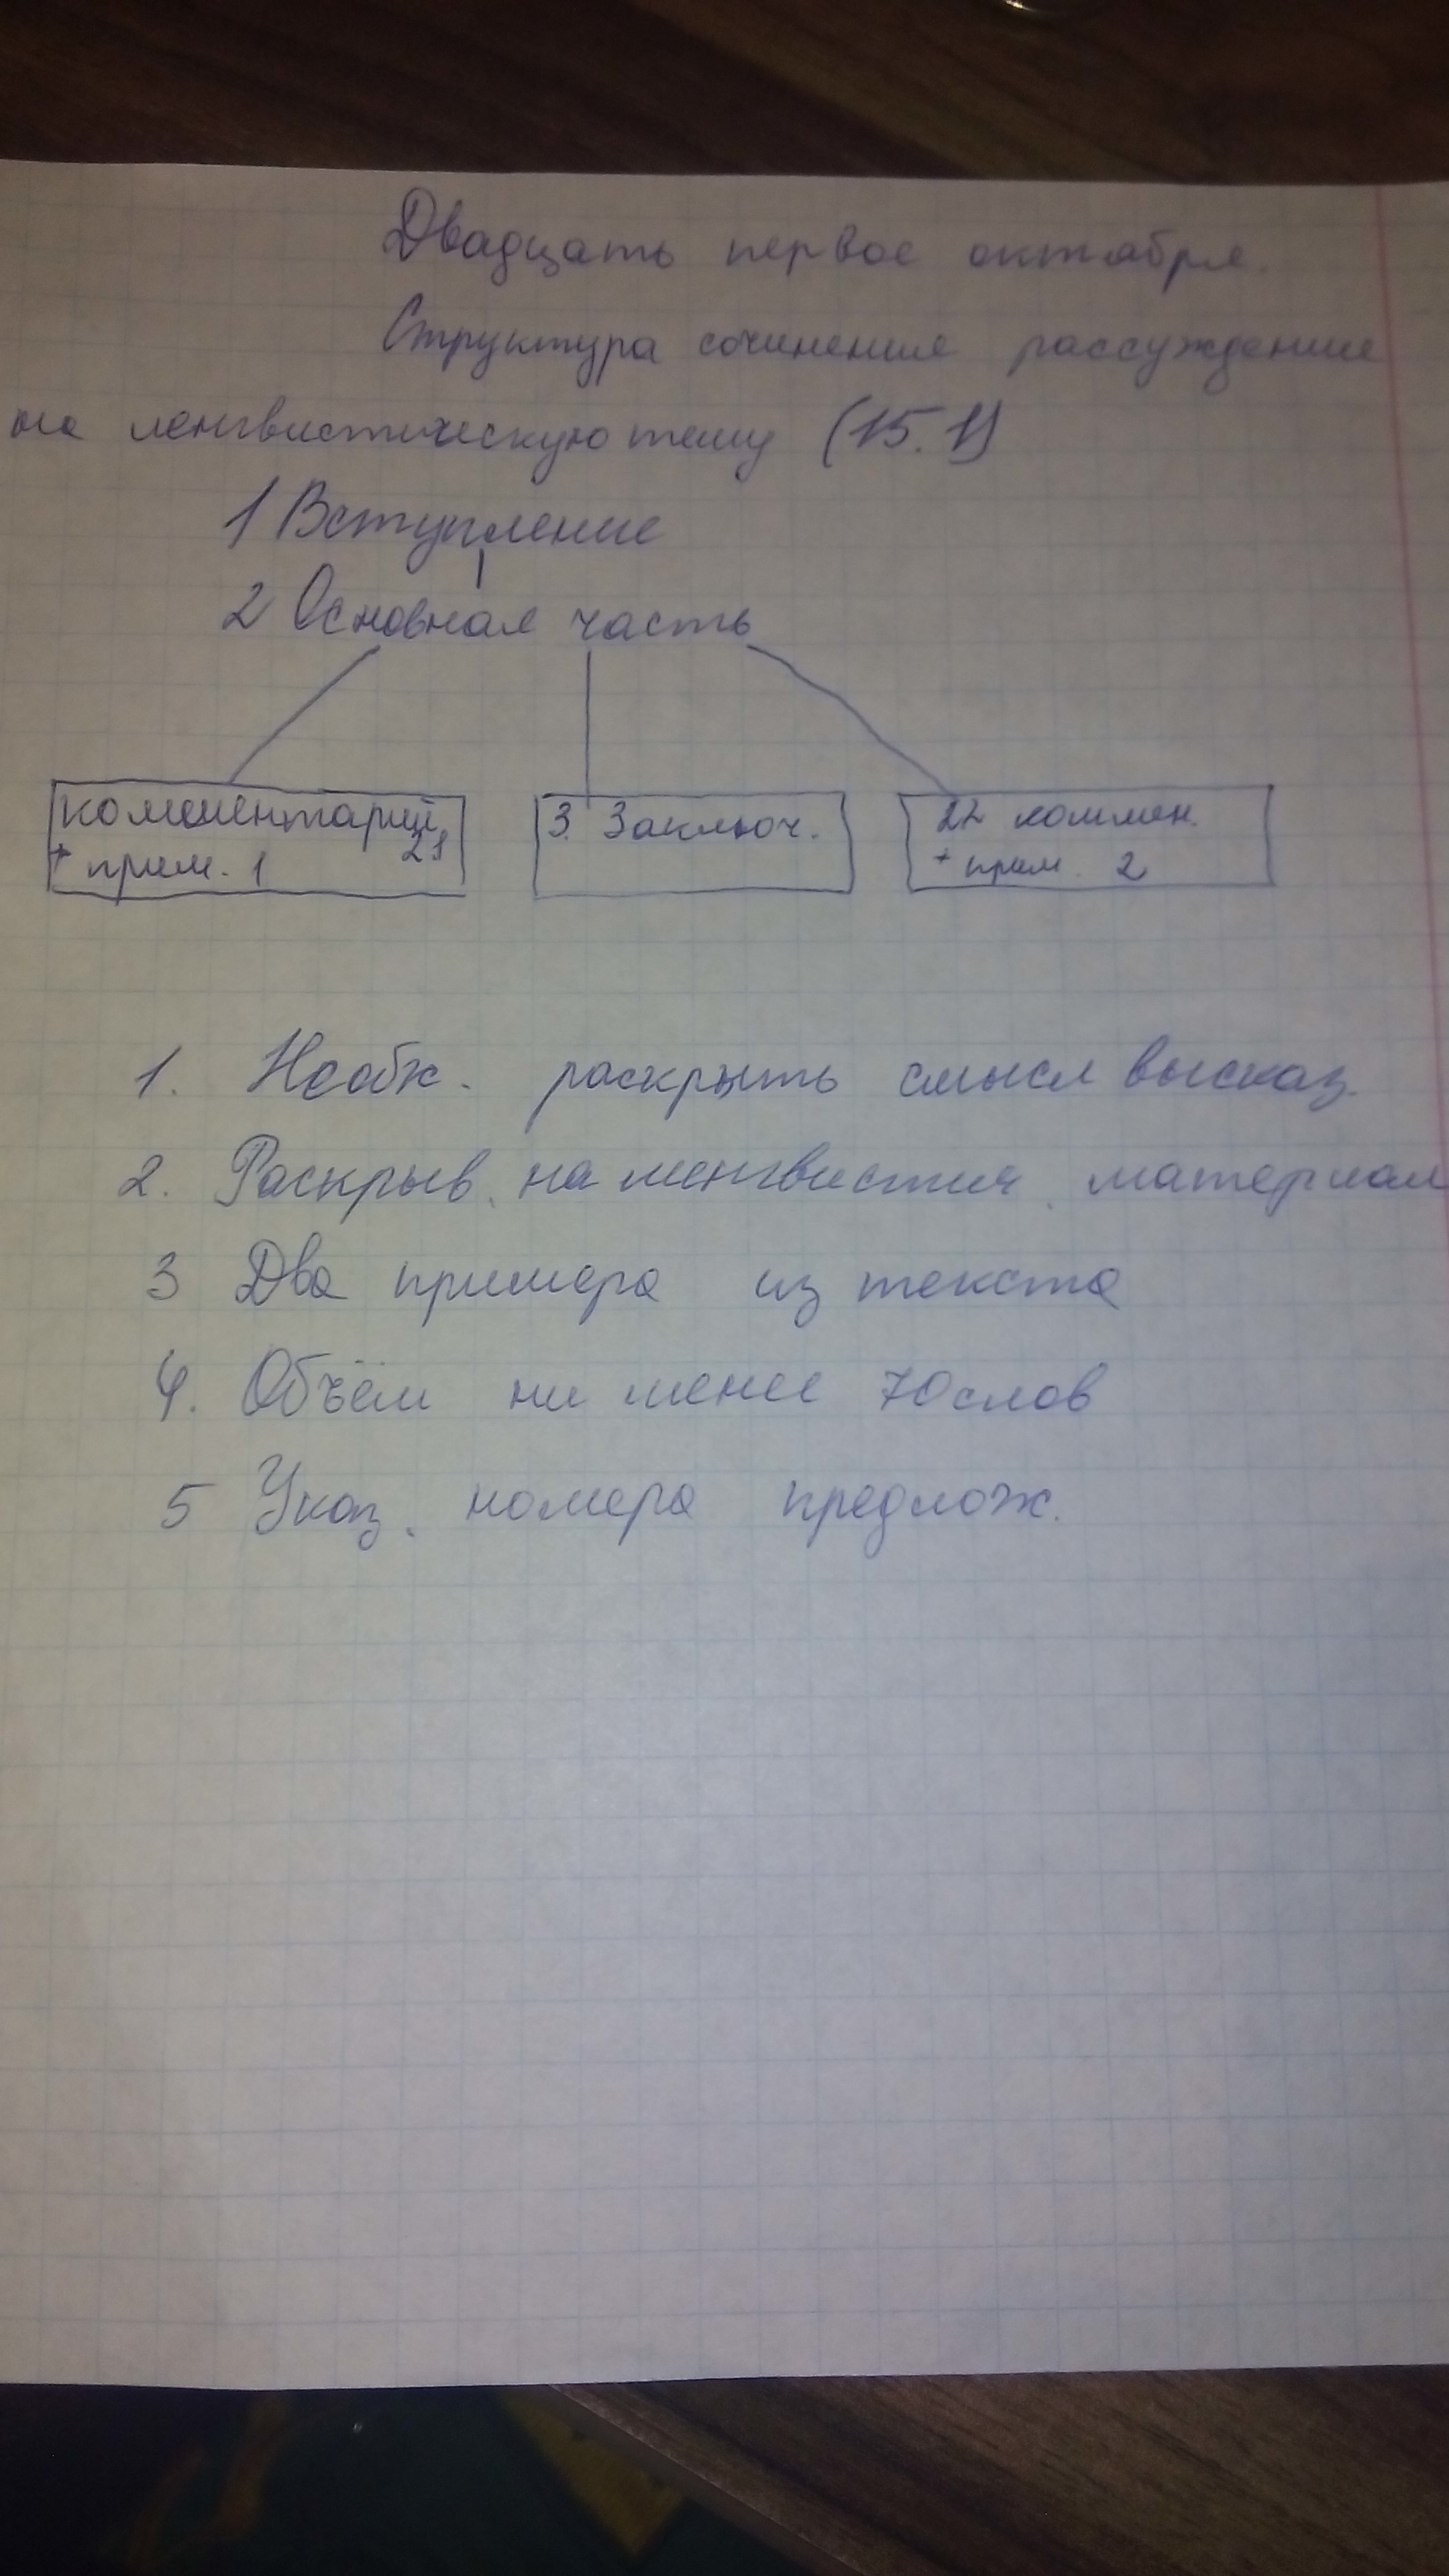 Двадцать первое октября.
Структура сочинения рассуждения
на ленгвистическую тему (15.1)
1 Вступление
2 Основная часть
комментарий 2.1
+ прим. 1
3. Заключ.
22 коммен.
+ прим. 2
1. Необх. раскрыть смысл высказ.
2. Раскрыв. на ленгвистич. материал
3 Два примера из текста
4. Объём ни менее 70 слов
5 Указ. номера предлож.